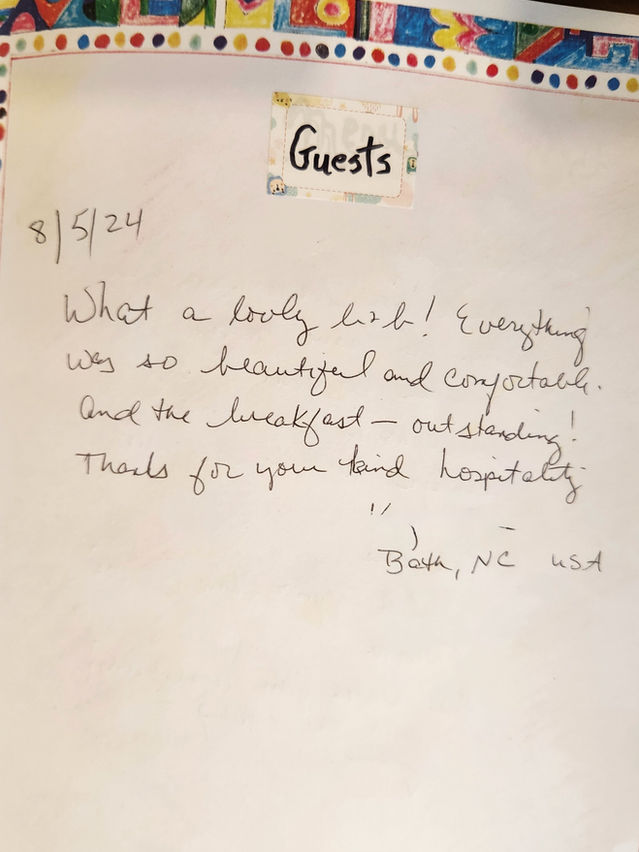 Guests
8/5/24
What a lovly b&b! Everything
was so beautiful and comfortable.
And the breakfast – outstanding!
Thanks for your kind hospitality
Bath, NC USA